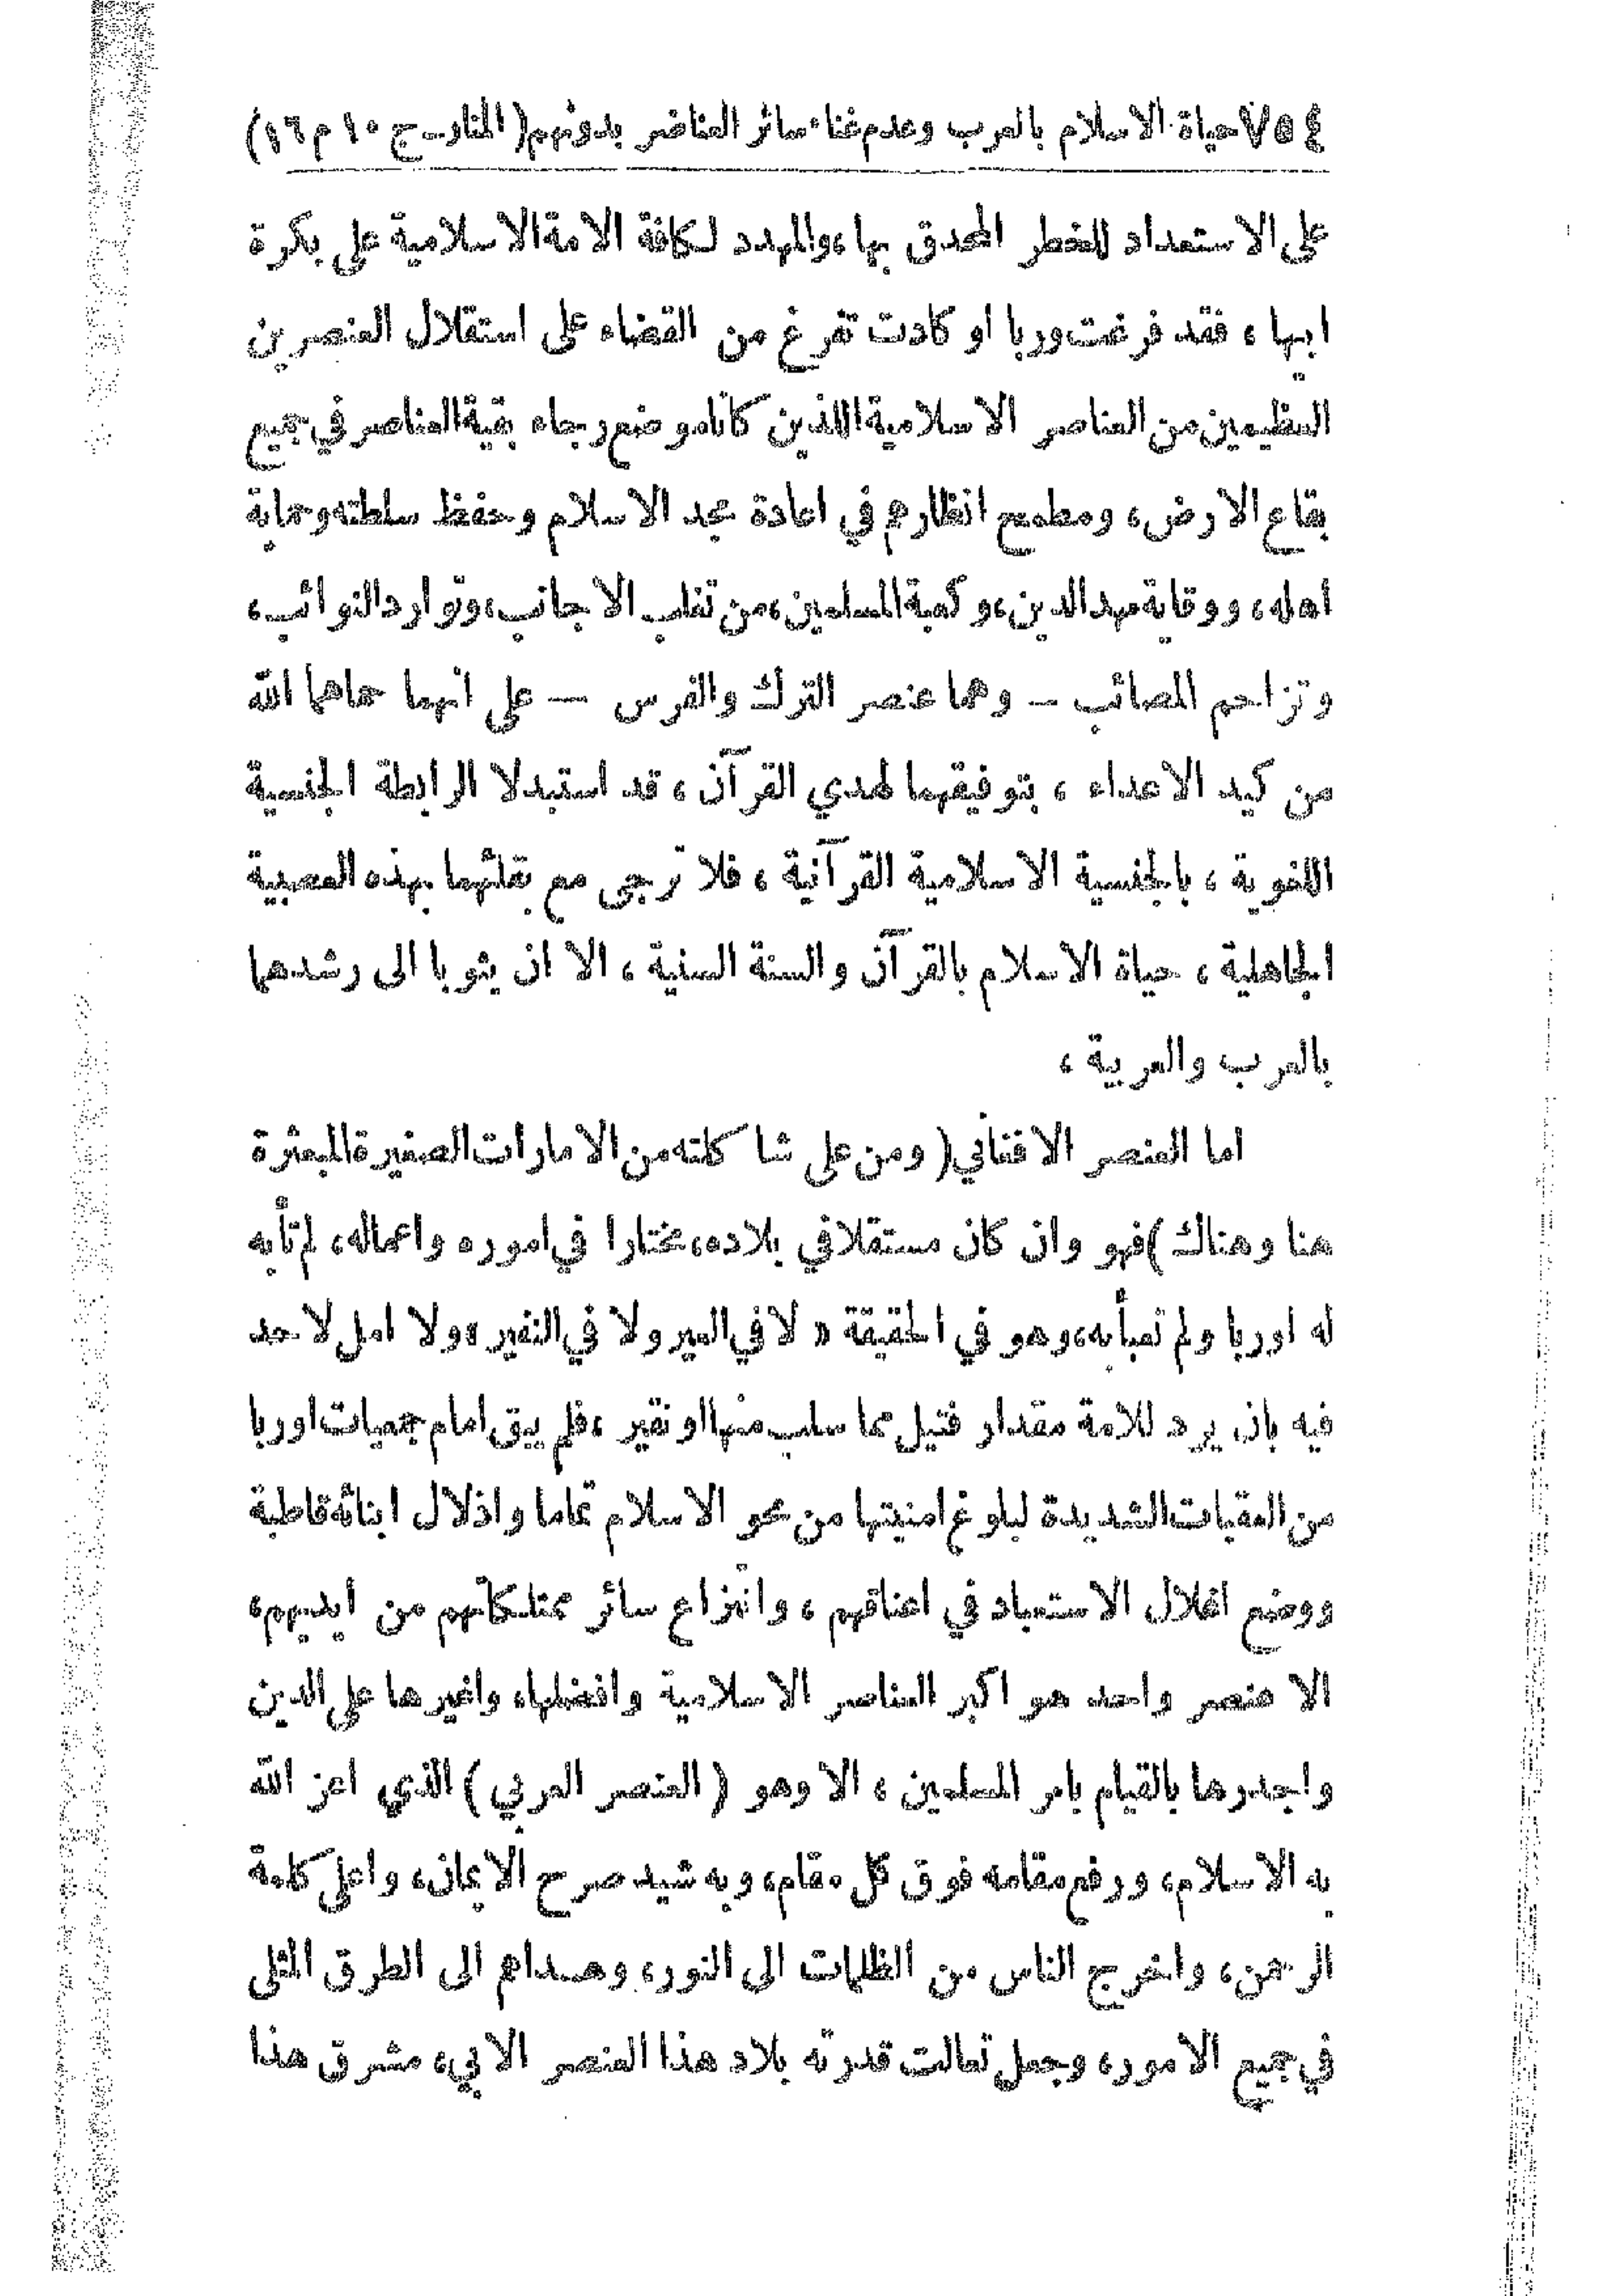 ٧٥٤ حياة الاسلام بالعرب وعدم غناء سائر العناصر بدونهم (المنار ـ ج ١٠ م ١٦)
على الاستعداد للخطر المحدق بها، والمهدد لكافة الامة الاسلامية على بكرة
ابيها ، فقد فرغت وربا او كادت تفرغ من القضاء على استقلال العنصرين
العظيمين من العناصر الاسلامية اللذين كانا موضع رجاء بقية العناصر في جميع
بقاع الارض، ومطمح انظارهم في اعادة مجد الاسلام وحفظ سلطته وحماية
اهله، ووقاية مهد الدين، وكعبة المسلمين، من تغلب الاجانب، وتوارد النوائب،
وتزاحم المصائب ـ وهما عنصر الترك والفرس — على انهما حماهما الله
من كيد الاعداء ، بتوفيقهما لهدي القرآن ، قد استبدلا الرابطة الجنسية
اللغوية ، بالجنسية الاسلامية القرآنية ، فلا ترجى مع بقائهما بهذه العصبية
الجاهلية ، حياة الاسلام بالقرآن والسنة السنية ، الا ان يثوبا الى رشدهما
بالعرب والعربية ،
اما العنصر الافغاني (ومن على شاكلته من الامارات الصغيرة المبعثرة
هنا وهناك) فهو وان كان مستقلا في بلاده، مختارا في اموره واعماله، لم تأبه
له اوربا ولم تعبأ به، وهو في الحقيقة « لا في العير ولا في النفير » ولا امل لاحد
فيه بان يرد للامة مقدار فتيل مما سلب منها او نقير ، فلم يبق امام جمعيات اوربا
من العقبات الشديدة لبلوغ امنيتها من محو الاسلام تماما واذلال ابنائه قاطبة
ووضع اغلال الاستعباد في اعناقهم ، وانتزاع سائر ممتلكاتهم من ايديهم،
الا عنصر واحد هو اكبر العناصر الاسلامية وافضلها، واغيرها على الدين
واجدرها بالقيام بامر المسلمين ، الا وهو (العنصر العربي) الذي اعز الله
به الاسلام، ورفع مقامه فوق كل مقام، وبه شيد صرح الايمان، واعلى كلمة
الرحمن، واخرج الناس من الظلمات الى النور، وهداهم الى الطرق المثلى
في جميع الامور، وجعل تعالت قدرته بلاد هذا العنصر الابي، مشرق هذا